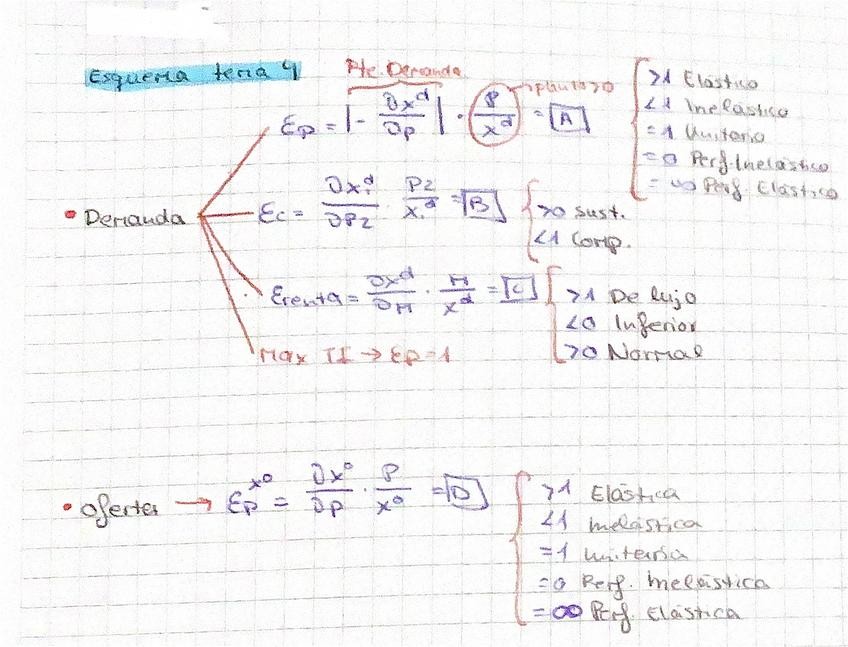 Esquema tema 4
Pte. Demanda
• Demanda
Ep = |- ∂x^d/∂p| · P/x^d = A
>1 Elástico
<1 Inelástico
=1 Unitario
=0 Perf. Inelástico
=∞ Perf. Elástico
Ec = ∂x₁^d/∂P2 · P2/x^d = B
>0 Sust.
<1 Comp.
Erenta = ∂x^d/∂M · M/x^d = C
>1 De lujo
<0 Inferior
>0 Normal
Max IT → Ep=1
• Oferta → Ep^x⁰ = ∂x⁰/∂p · P/x⁰ = D
>1 Elástica
<1 inelástica
=1 unitaria
=0 Perf. inelástica
=∞ Perf. Elástica